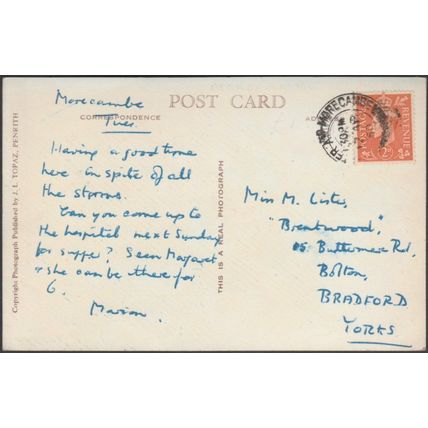 POST CARD
CORRESPONDENCE
Morecambe
Tues.
Having a good time
here in spite of all
the storms.
Can you come up to
the hospital next Sunday
for supper? Seen Margaret
& she can be there for
6.
Marion.
Copyright Photograph Published by J. L. TOPAZ, PENRITH
THIS IS A REAL PHOTOGRAPH
MORECAMBE
REVENUE
Miss M. Lister,
"Brentwood",
Buttermere Rd,
Bolton,
BRADFORD
YORKS